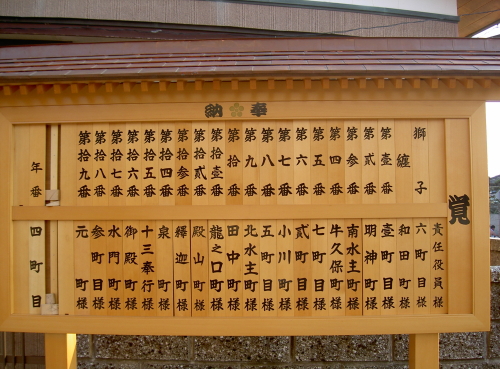 奉納
覚
責任役員様
獅子
六町目様
纏
和田町様
第壹番
壹町目様
第貳番
明神町様
第参番
南水主町様
第四番
牛久保町様
第五番
七町目様
第六番
貳町目様
第七番
小川町様
第八番
五町目様
第九番
北水主町様
第拾番
田中町様
第拾壹番
龍之口町様
第拾貳番
殿山町様
第拾参番
釋迦町様
第拾四番
泉町様
第拾五番
十三奉行様
第拾六番
御殿町様
第拾七番
水門町様
第拾八番
参町目様
第拾九番
元町様
年番
四町目